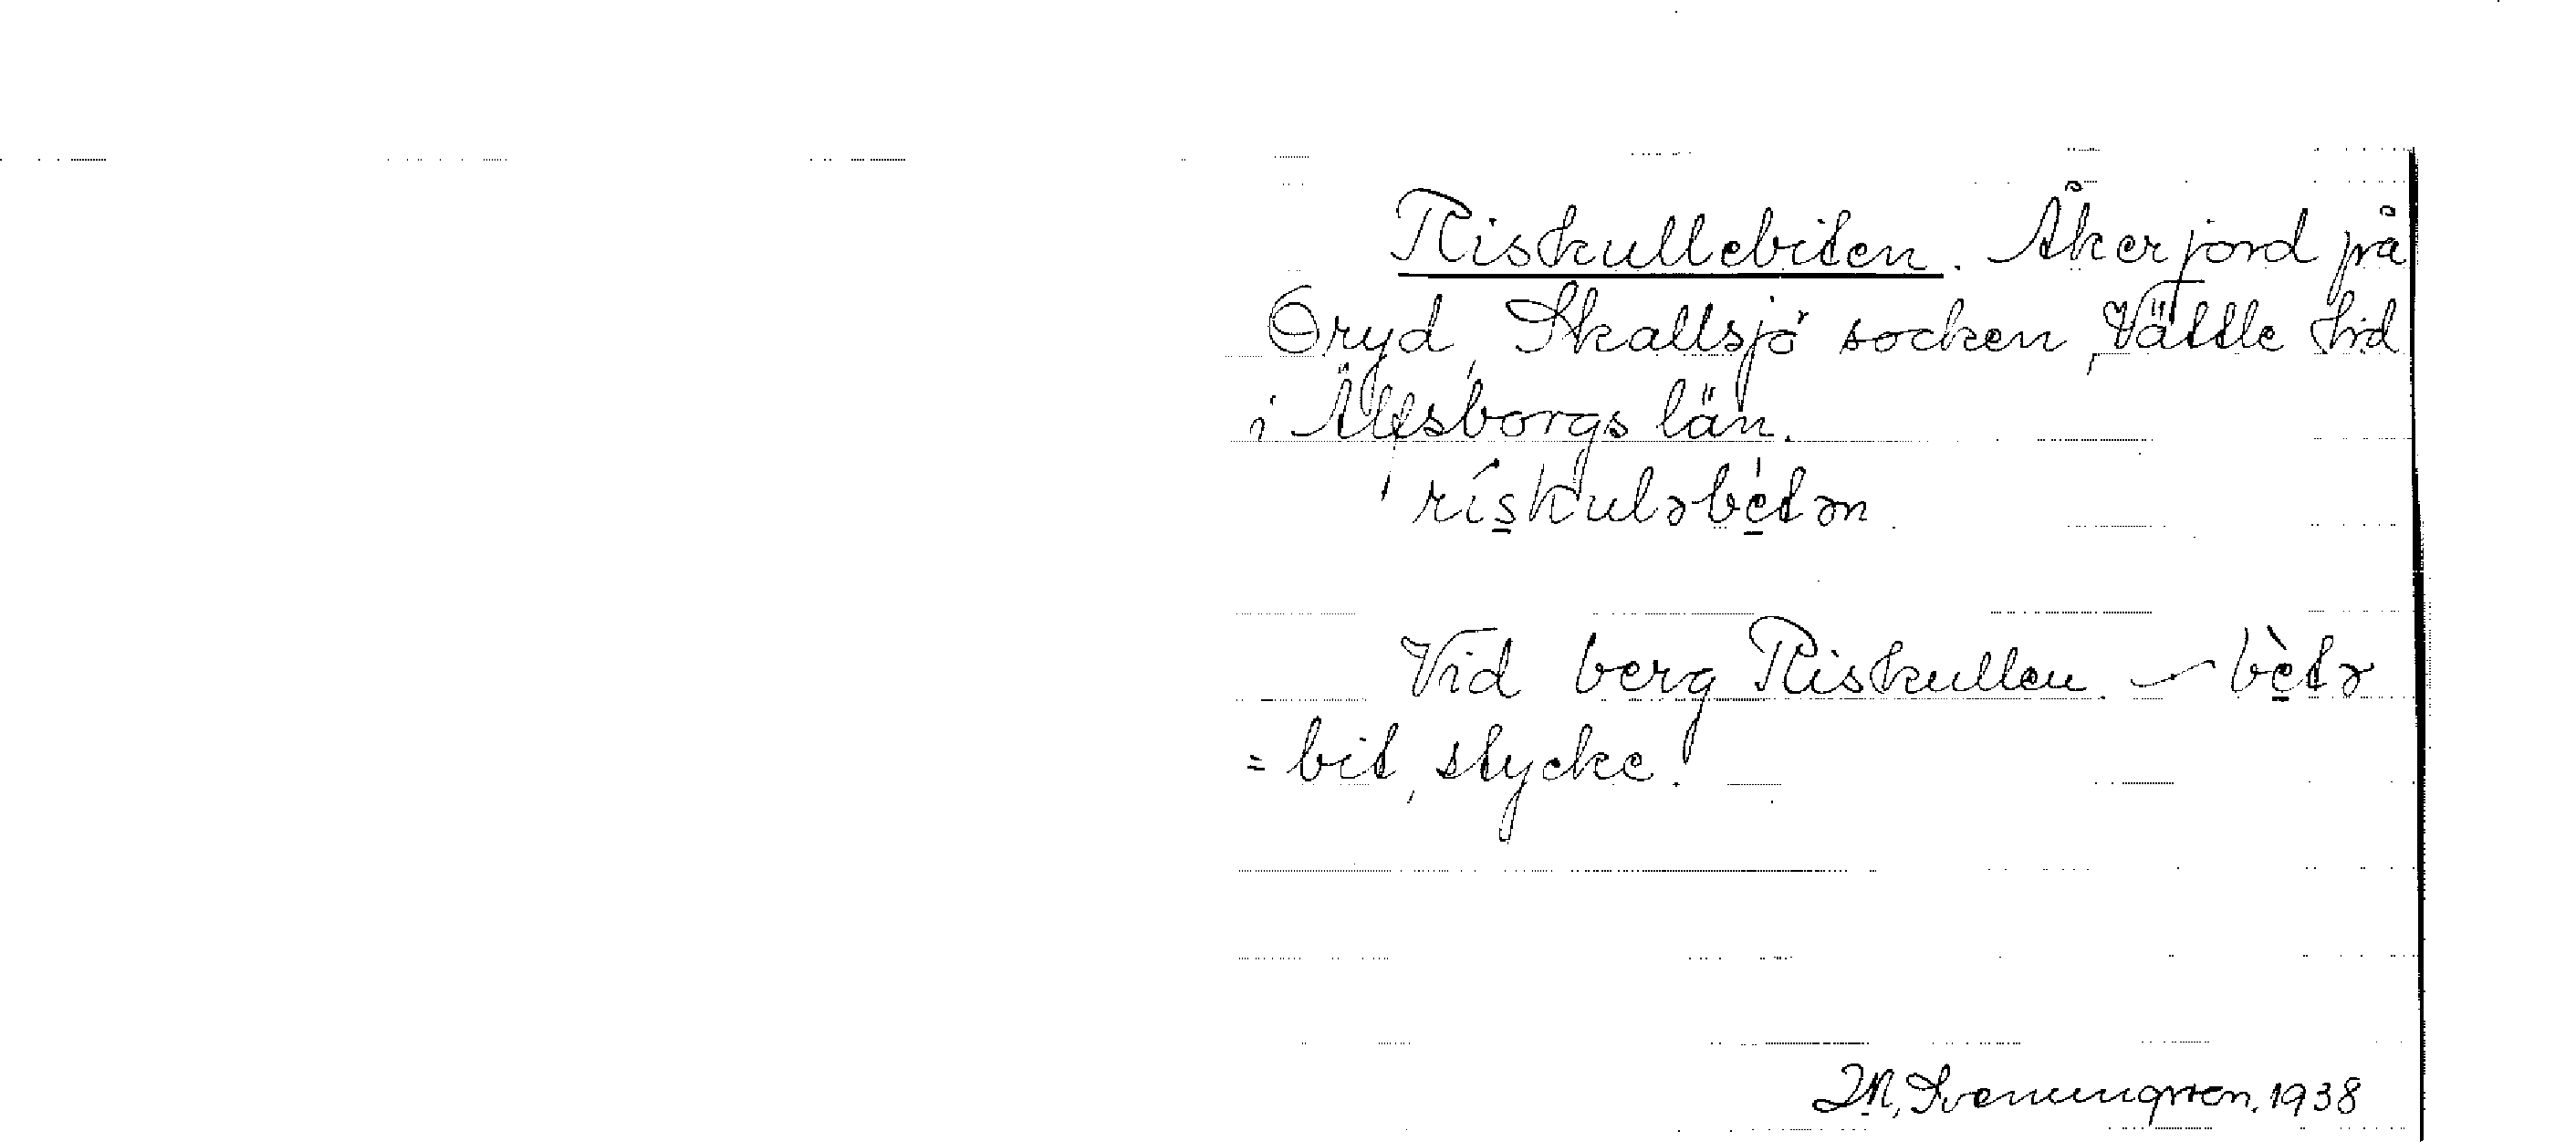 Riskullebiten. Åkerjord på
Öryd, Skallsjö socken, Vättle hd
i Älfsborgs län.
'rískuləbétən
Vid berg Riskullen. – bètə
= bit, stycke.
1938